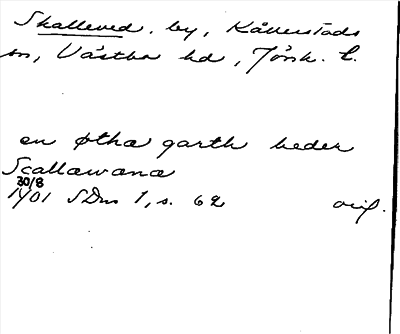 Skalleved, by, Kållerstads
sn, Västbo hd, Jönk. l.
en øtha garth heder
Scallawana
30/8
1401 SDns 1, s. 62 orig.